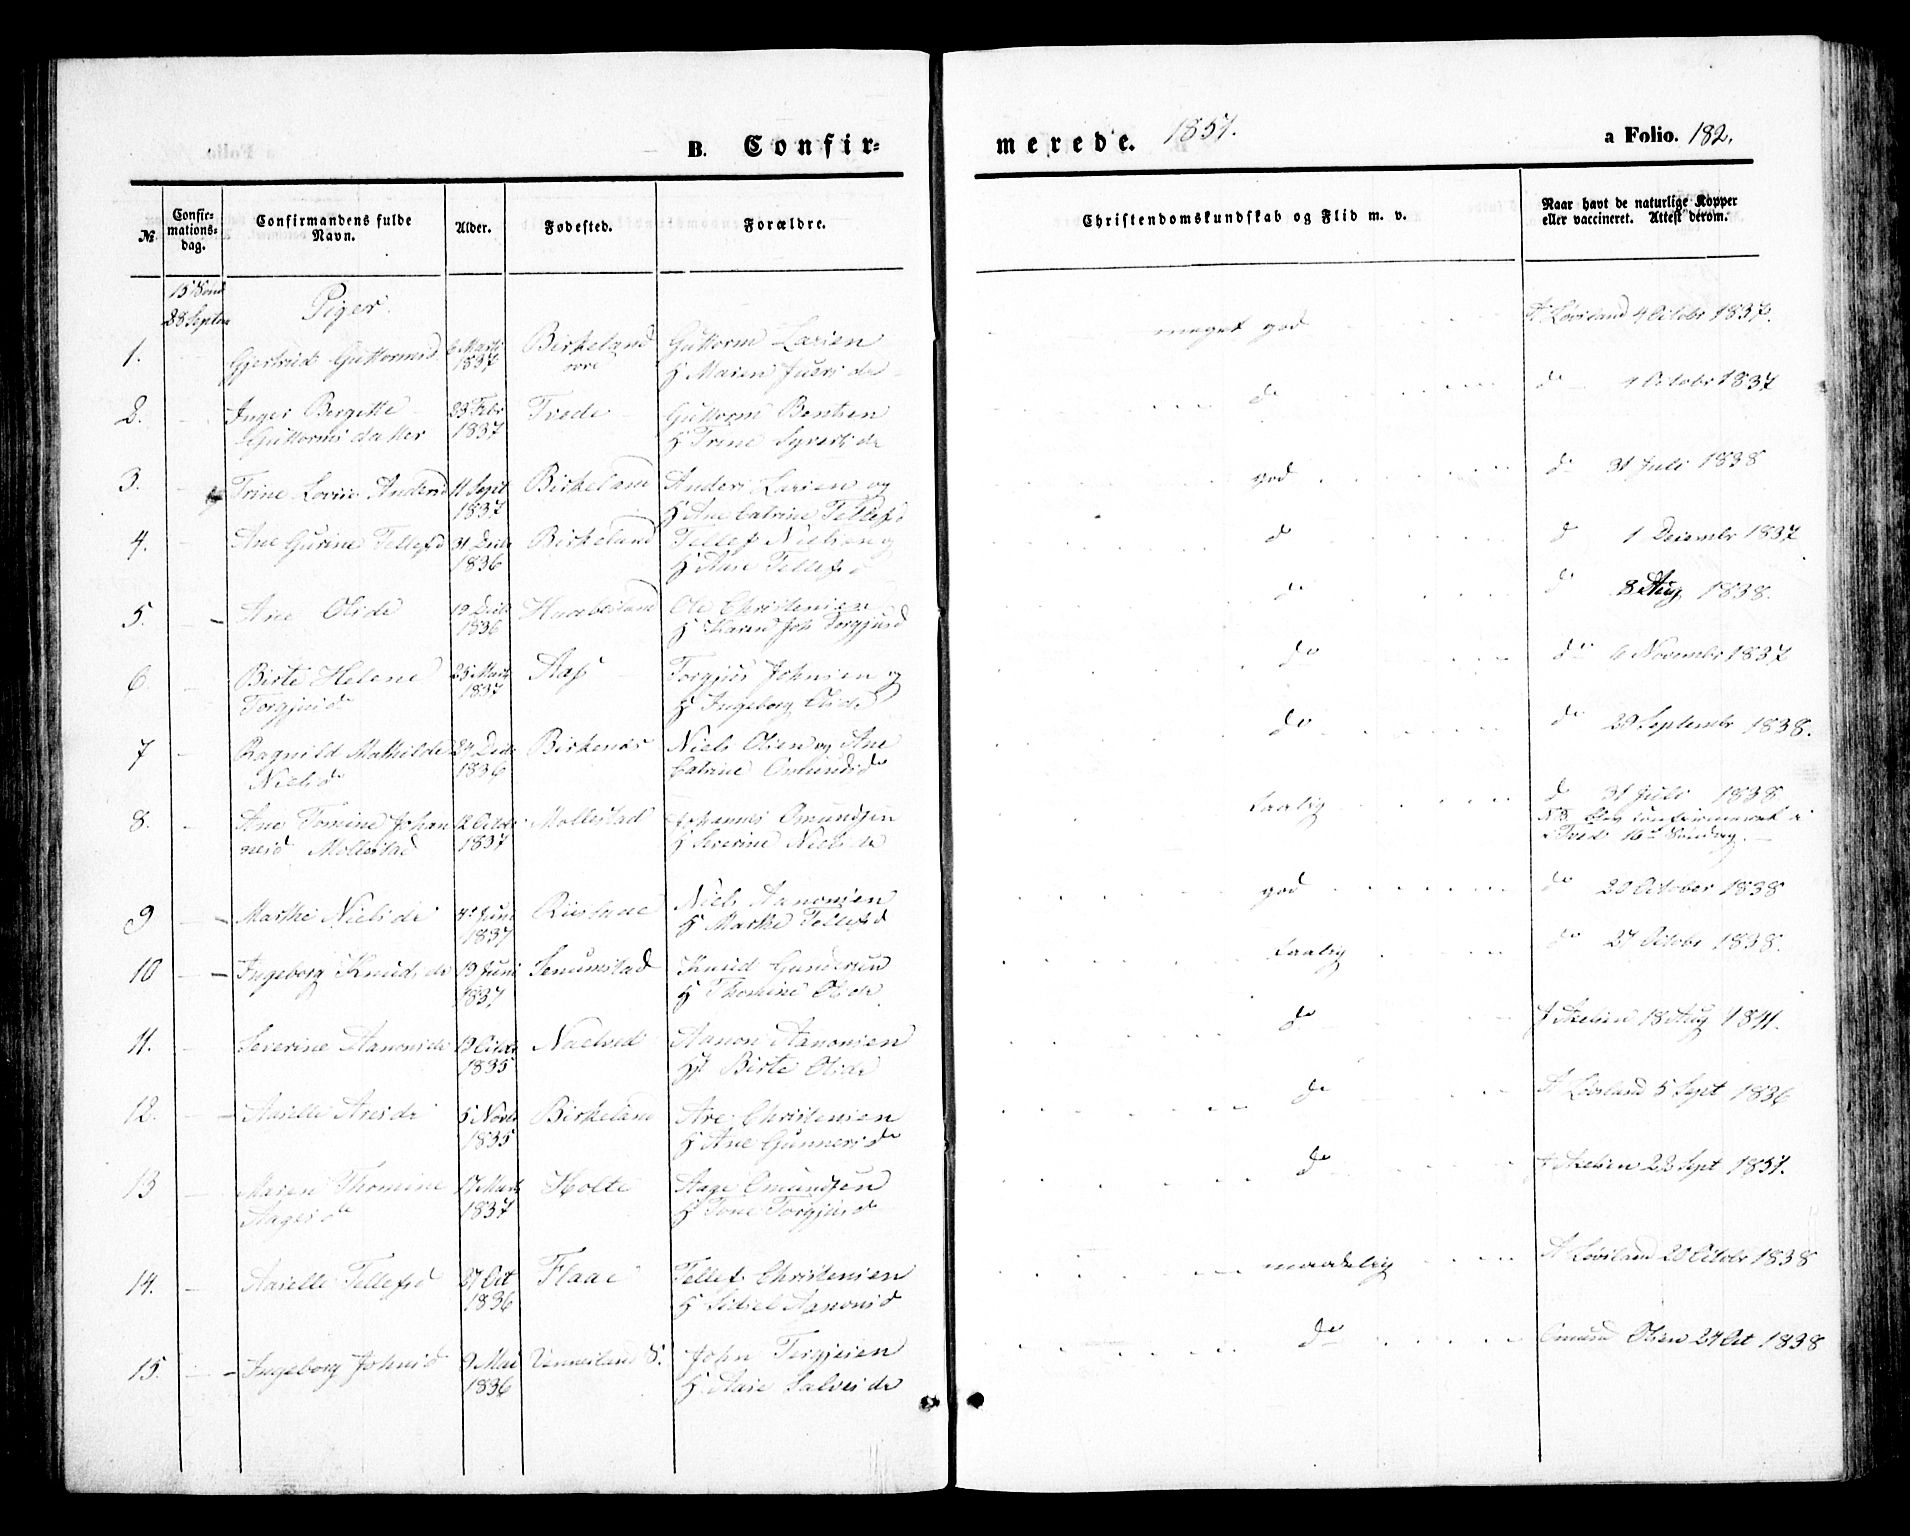 B. Confir-
merede. 1851.
a Folio. 182.
№
Confir-
mations-
dag.
Confirmandens fulde
Navn.
Alder.
Fødested.
Forældre.
Christendomskundskab og Flid m. v.
Naar havt de naturlige Kopper
eller vaccineret. Attest derom.
28 Septbr
Piger.
1.
Gjertrud Guttormsd
1837
Birkeland
Guttorm Larsen
meget god
Løvland 4 Octobr 1837.
2.
Inger Bergitte
Guttormsdatter
23 Febr
1837
Trede
Guttorm Bentsen
H Trine Syverts de
do
do 4 Octobr 1837
3.
Trine Lovise Andersd
11 Sept
1837
Birkeland
Anders Larsen og
H Ane Catrine Tellefsd
god
do 31 Juli 1838
4.
Ane Gurine Tellefsd
31 Decbr
1836
Birkeland
Tellef Nielsen og
H Aase Tellefsd
do
d 1 Decembr 1837
5.
Ane Olsde
19
1836
Ole Christensen
H Karen Joh Torgjusd
do
do 8 Aug 1838.
6.
Birte Helene
Torgjusd
25 Marts
1837
Aas
Torgjus Johnsen og
H Ingeborg Olsde
do
do 6 Novembr 1837
7
Ragnild Mathilde
Nielsd
24 Decbr
1836
Birkenes
Niels Olsen og Ane
Catrine Omundsde
do
do 29 Septembr 1838.
8.
Ane Tomine Johan
nesd Mollestad
12 Octobr
1837
Mollestad
Johannes Omundsen
H Severine Nielsde
taalig
do 31 Juli 1838
NB Blev confirmeret i
16de Søndag.
9
Marthe Nielsde
1837
Niels Aanonsen
H Marthe Tellefsd
god
do 20 October 1838
10
Ingeborg Knudsde
19 Juni
1837
Senumstad
Knud Gundersen
H Thomine Olsde
taalig
do 27 Octobr 1838.
11.
Severine Aanonsde
19 Octbr
1835
Natvid
Aanon Aanonsen
H Birte Olsde
do
18 Aug 1841.
12.
Aaselle Aresde
5 Novbr
1835
Birkeland
Are Christensen
H Ane Gunnersde
do
Løvland 5 Sept 1836
13
Maren Thomine
Aagesde
17 Marts
1837
Holte
Aage Omundsen
H Tone Torgjusd
do
28 Sept 1851.
14.
Aaselle Tellefsd
27 Oct
1836
Flaae
Tellef Christensen
H Sidsel Aanonsd
maadelig
Løvland 20 Octobr 1838
15.
Ingeborg Johnsd
9 Mai
1836
John Tergjesen
H Aase Salvesde
do
Omund Olsen 27 Oct 1838